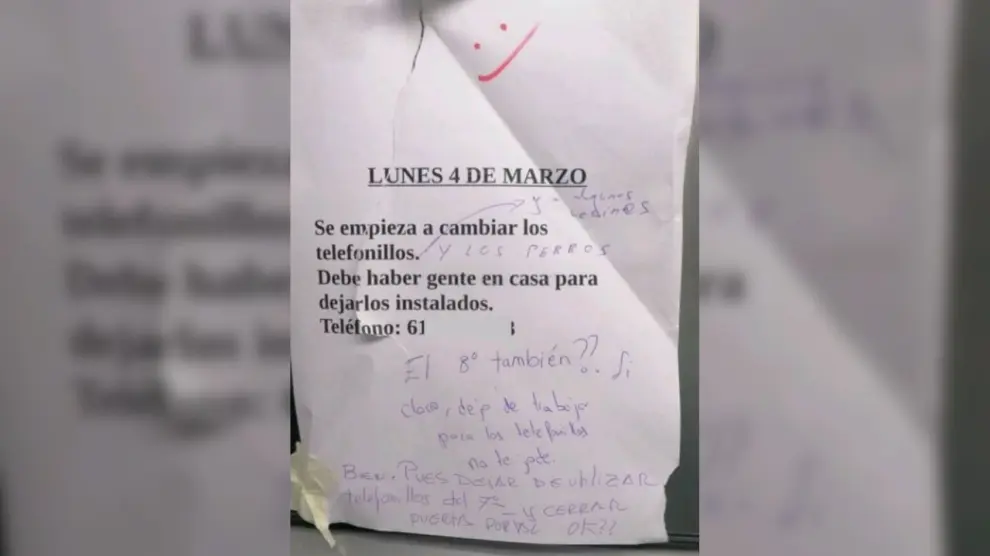 LUNES 4 DE MARZO
y algunos
vecin@s
Se empieza a cambiar los
telefonillos. Y LOS PERROS
Debe haber gente en casa para
dejarlos instalados.
Teléfono: 61
El 8º también??. Si
claro, dejo de trabajar
para los telefonillos
no te jode.
BIEN. PUES DEJAR DE UTILIZAR
telefonillos del 7º Y CERRAR
PUERTA PORTAL OK??